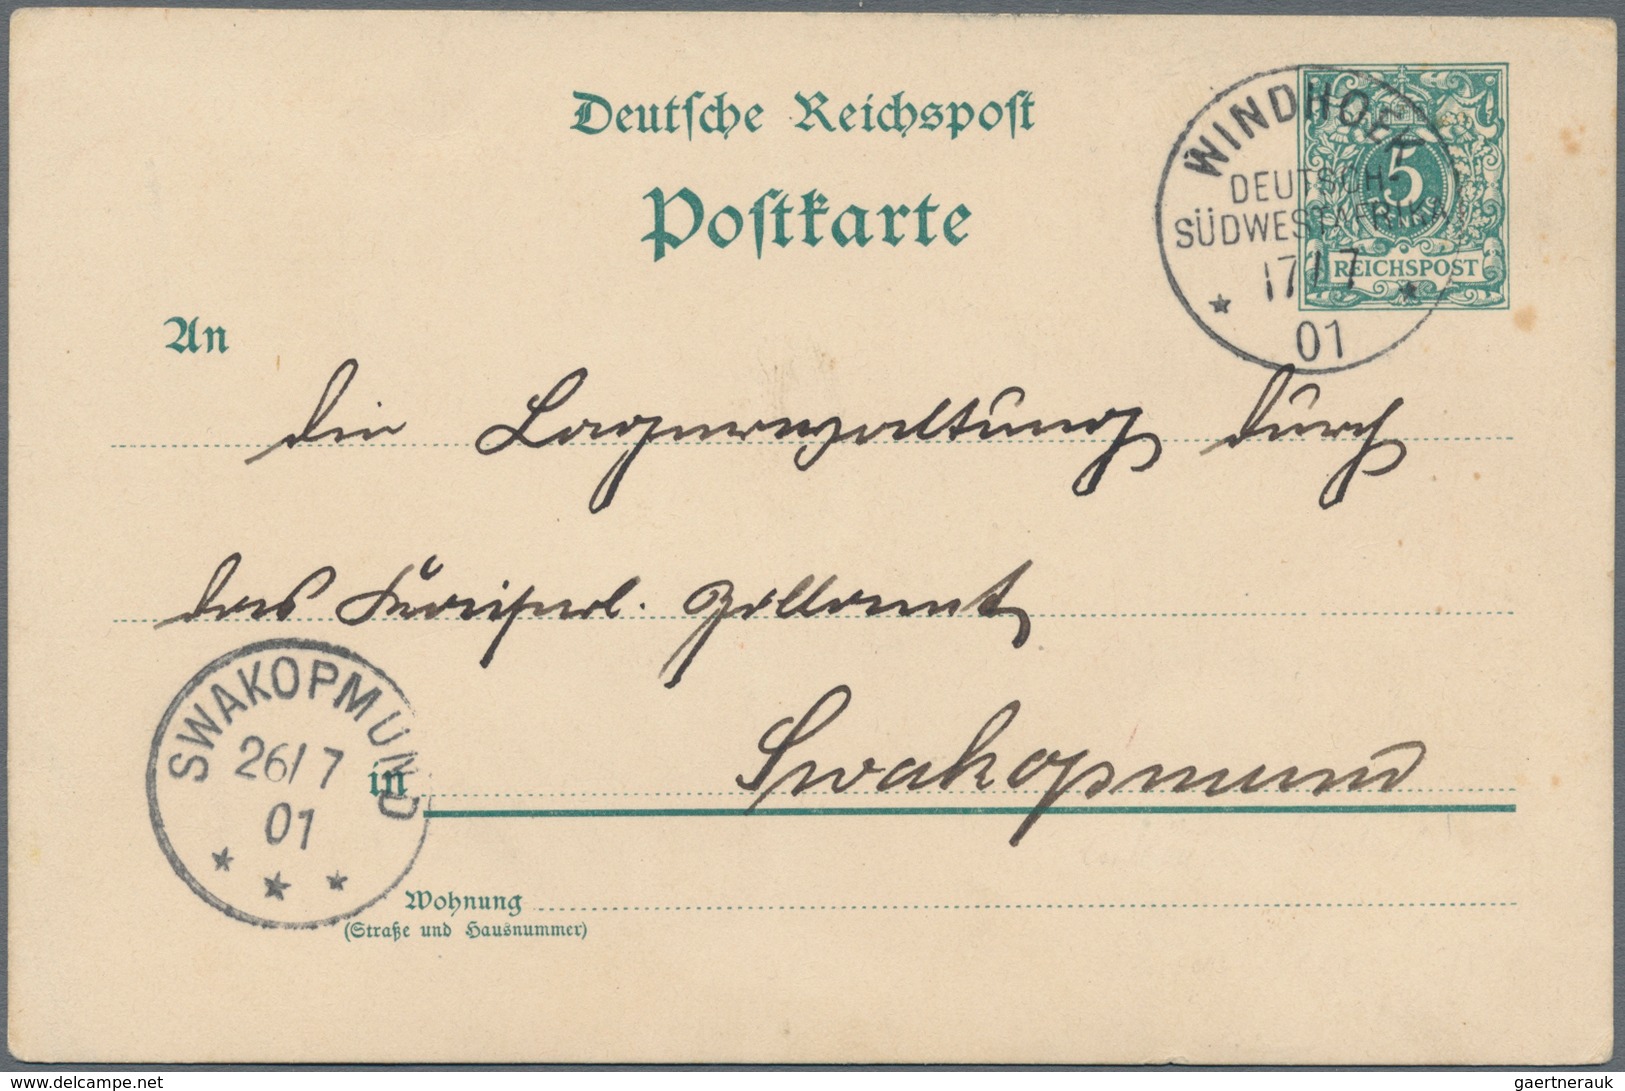 Deutsche Reichspost
Postkarte
WINDHOEK
DEUTSCH-
SÜDWESTAFRIKA
17/7
01
5
REICHSPOST
An
die Lagerverwaltung durch
das Kaiserl. Zollamt
Swakopmund
in
SWAKOPMUND
26/7
01
Wohnung
(Straße und Hausnummer)
www.delcampe.net
gaertnerauk